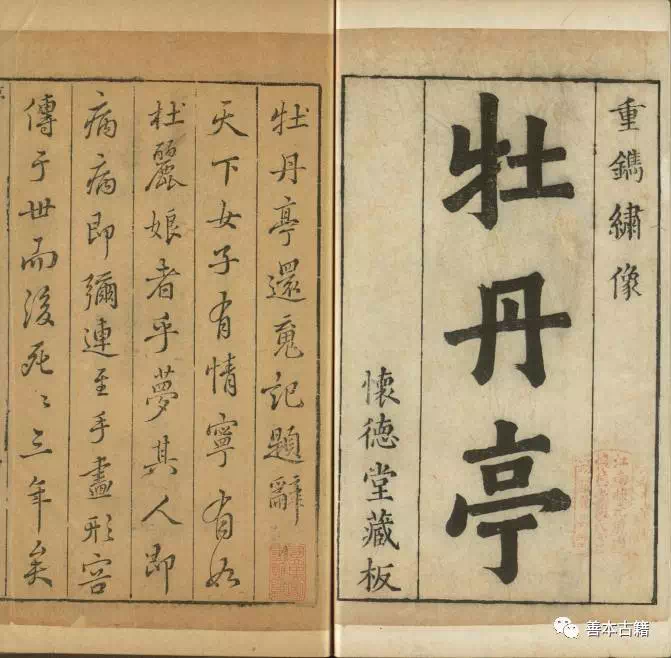 重鐫繡像
牡丹亭
懷德堂藏板
牡丹亭還䰟記題辭
天下女子有情寧有如
杜麗娘者乎夢其人即
病病即彌連至手畫形容
傳于世而後死〻三年矣
善本古籍